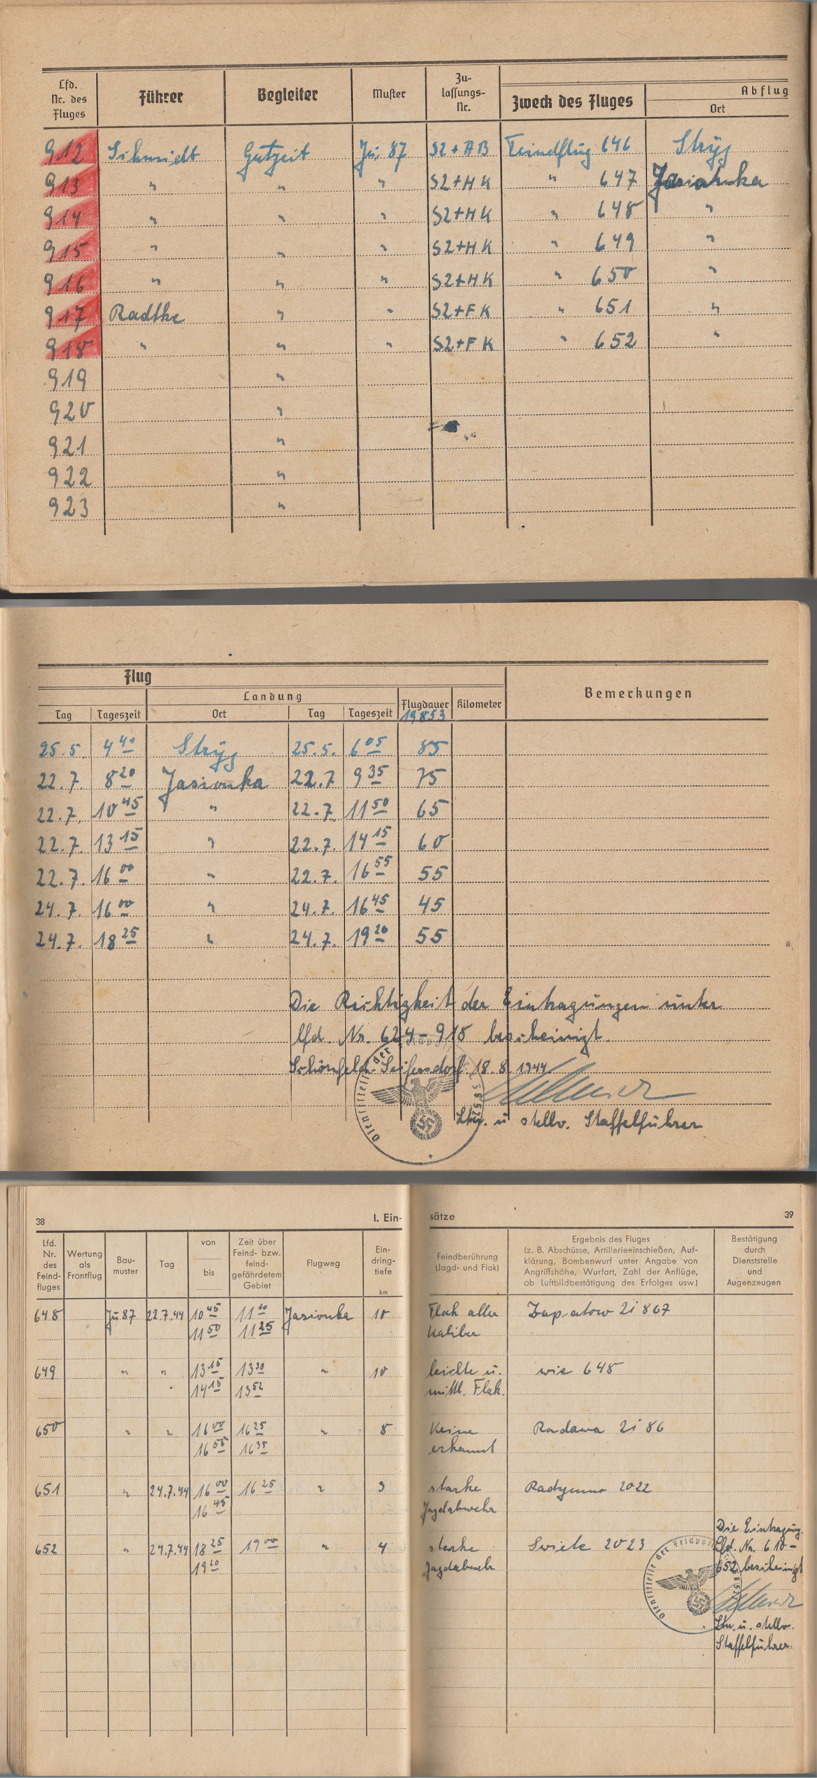 Lfd. Nr. des Fluges | Führer | Begleiter | Muster | Zu- lassungs- Nr. | Zweck des Fluges | Abflug
Ort
912 Schmidt Gutzeit Ju 87 S2+AB Feindflug 646 Stryj
913 " " " S2+HK " 647 Jasionka
914 " " " S2+HK " 648 "
915 " " " S2+HK " 649 "
916 " " " S2+HK " 650 "
917 Radtke " " S2+FK " 651 "
918 " " " S2+FK " 652 "
919 "
920 "
921 "
922 "
923 "
Flug
Landung | Bemerkungen
Tag | Tageszeit | Ort | Tag | Tageszeit | Flugdauer | Kilometer
19853
25.5. 4 40 Stryj 25.5. 6 05 85
22.7. 8 20 Jasionka 22.7 9 35 75
22.7. 10 45 " 22.7. 11 50 65
22.7. 13 15 " 22.7. 14 15 60
22.7. 16 00 " 22.7. 16 55 55
24.7. 16 00 " 24.7. 16 45 45
24.7. 18 25 " 24.7. 19 20 55
Die Richtigkeit der Eintragungen unter
lfd. Nr. 624-918 bescheinigt.
Schönfeld-Seifersdorf, 18.8.1944
Ltn. u. stellv. Staffelführer
Dienststelle der
38 I. Ein-
Lfd. Nr. des Feind- fluges | Wertung als Frontflug | Bau- muster | Tag | von bis | Zeit über Feind- bzw. feind- gefährdetem Gebiet | Flugweg | Ein- dring- tiefe km
648 Ju 87 22.7.44 10 45 11 10 Jasionka 10
11 50 11 25
649 " " 13 15 13 30 " 10
14 15 13 52
650 " " 16 00 16 25 " 8
16 55 16 35
651 " 24.7.44 16 00 16 25 " 3
16 45
652 " 24.7.44 18 25 19 00 " 4
19 20
sätze 39
Feindberührung (Jagd- und Flak)
Ergebnis des Fluges
(z. B. Abschüsse, Artillerieeinschießen, Auf-
klärung, Bombenwurf unter Angabe von
Angriffshöhe, Wurfart, Zahl der Anflüge,
ob Luftbildbestätigung des Erfolges usw.)
Bestätigung
durch
Dienststelle
und
Augenzeugen
Flak aller Zapatow 21 867
Kaliber
leichte u. wie 648
mittl. Flak.
Keine Radawa 21 86
erkannt
starke Radymno 2022
Jagdabwehr
starke Swiete 2023
Jagdabwehr
Die Eintragung
lfd. Nr. 610-
652 bescheinigt
Ltn. u. stellv.
Staffelführer.
Dienststelle der Feldpost